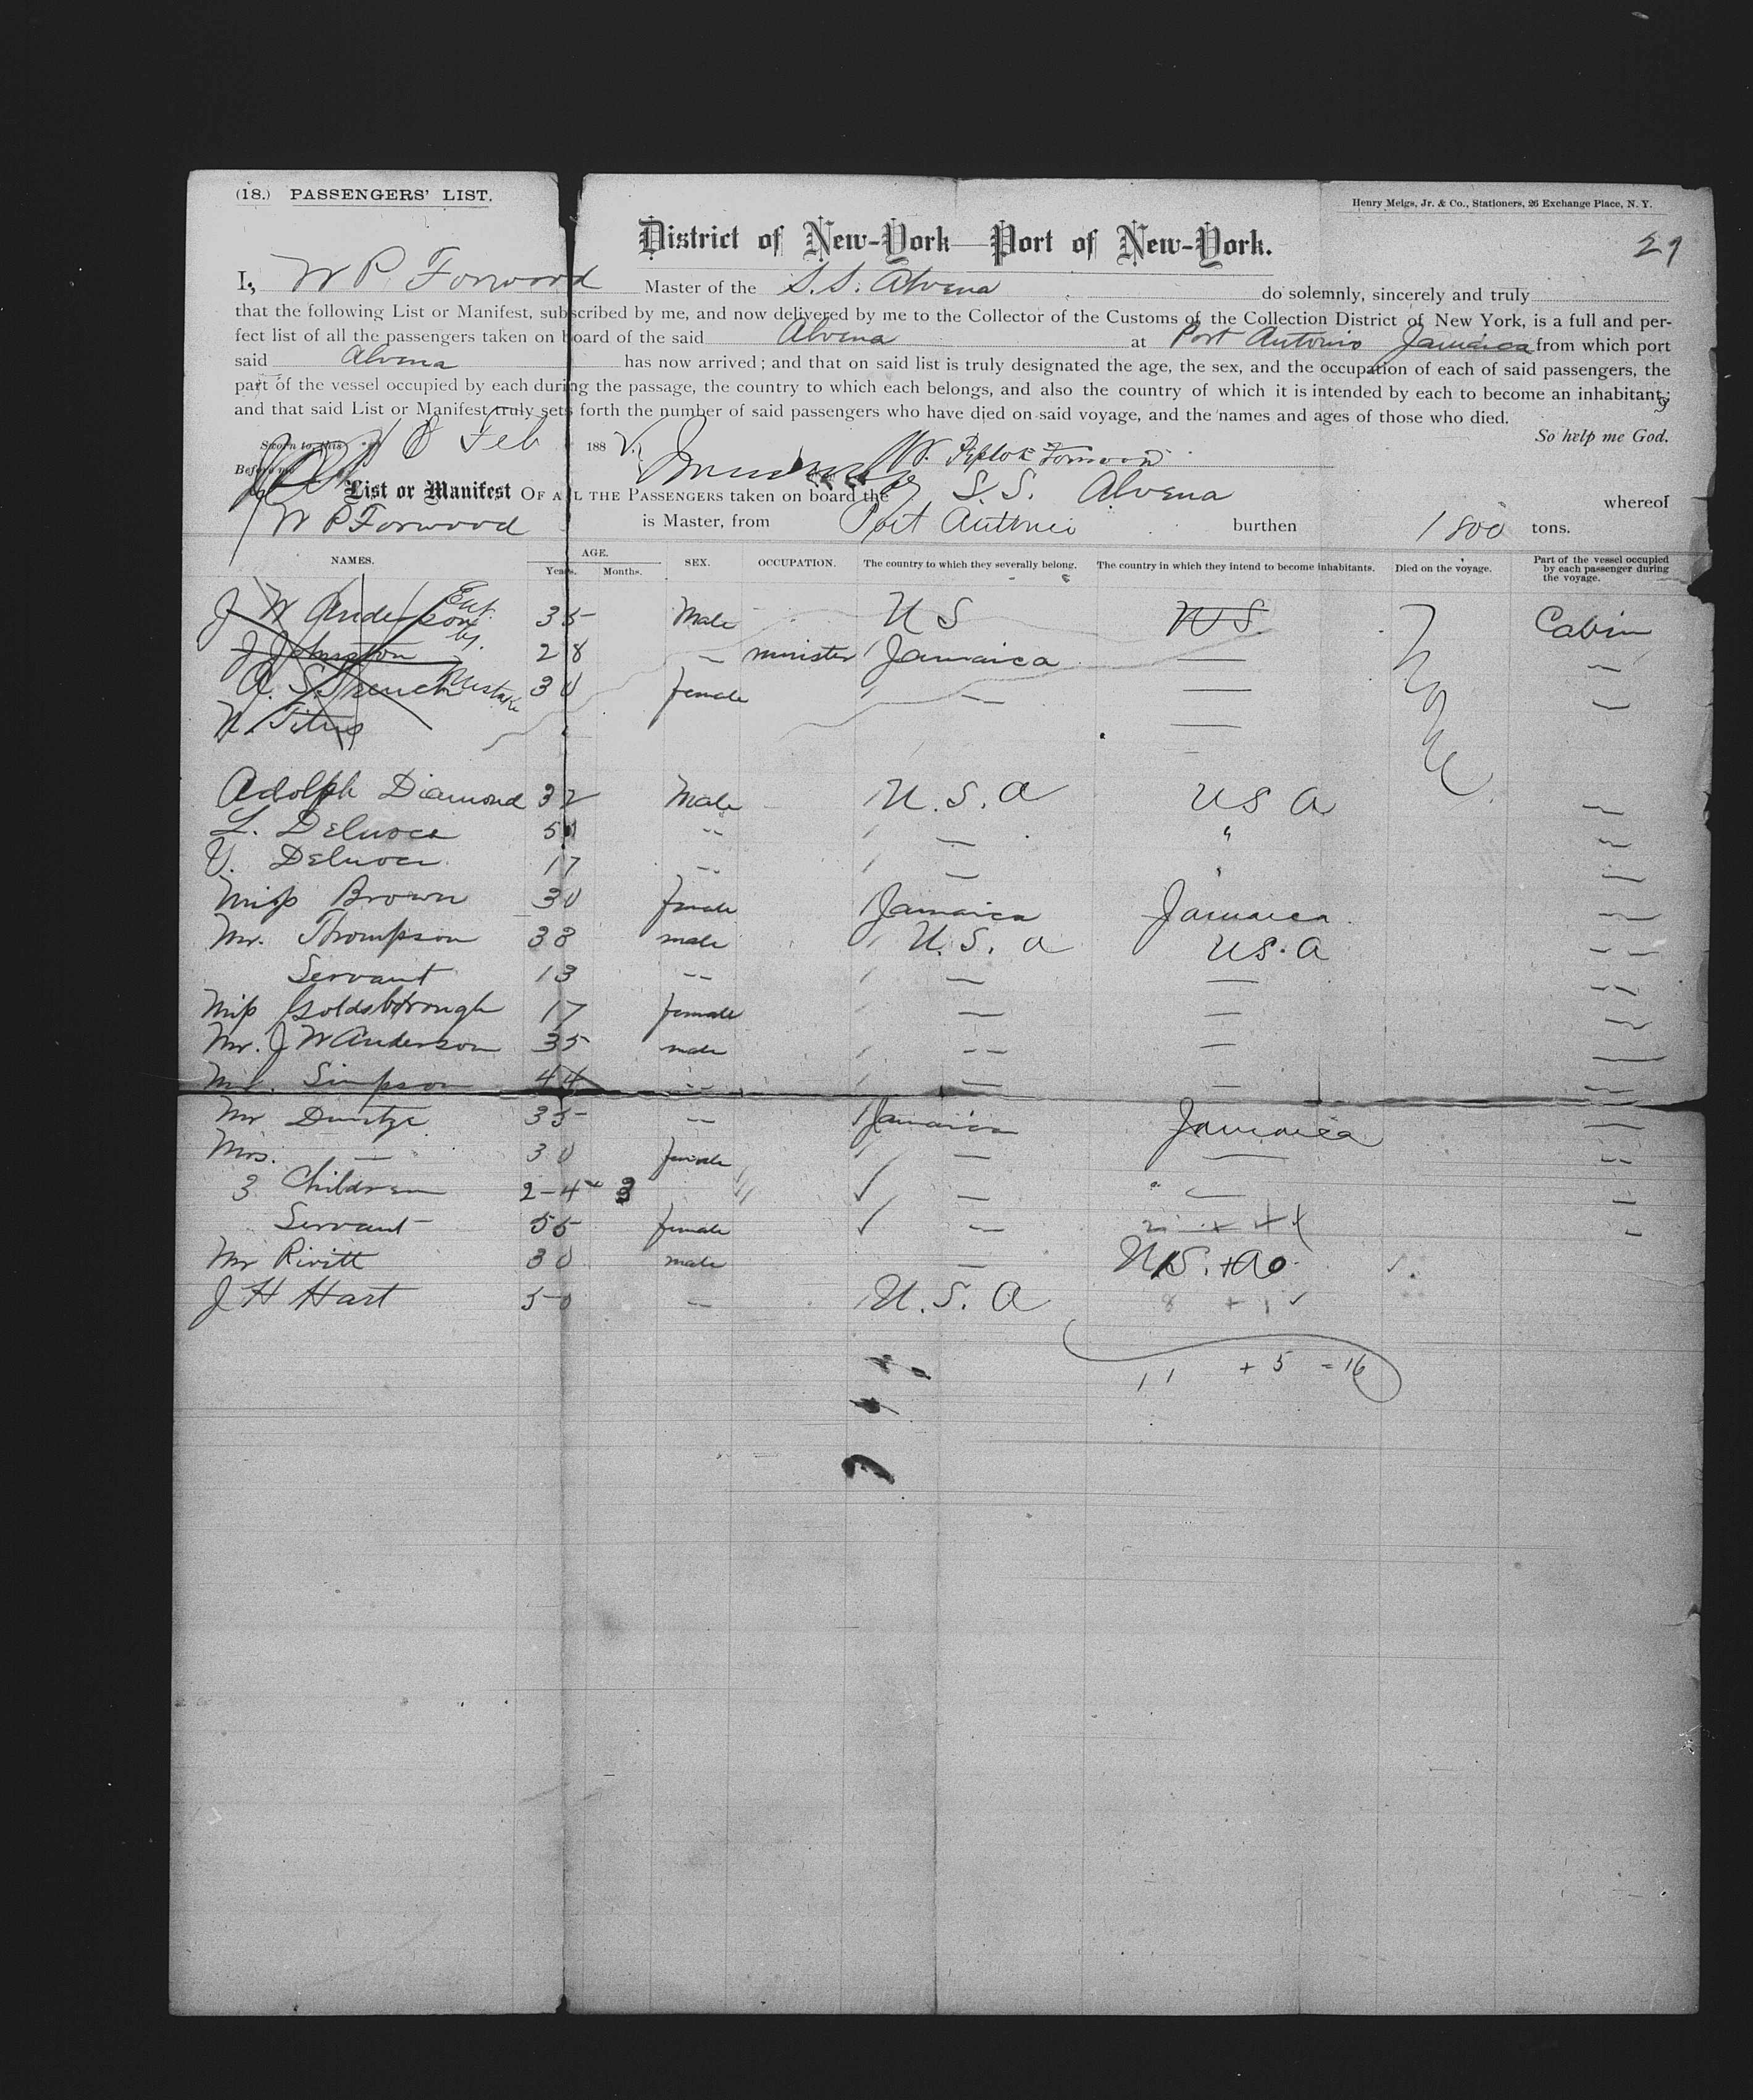 (18.) PASSENGERS' LIST.
Henry Meigs, Jr. & Co., Stationers, 26 Exchange Place, N. Y.
District of New-York—Port of New-York.
I, W P. Forwood Master of the S.S. Alvena do solemnly, sincerely and truly
that the following List or Manifest, subscribed by me, and now delivered by me to the Collector of the Customs of the Collection District of New York, is a full and per-
fect list of all the passengers taken on board of the said Alvena at Port Antonio Jamaica from which port
said Alvena has now arrived; and that on said list is truly designated the age, the sex, and the occupation of each of said passengers, the
part of the vessel occupied by each during the passage, the country to which each belongs, and also the country of which it is intended by each to become an inhabitant;
and that said List or Manifest truly sets forth the number of said passengers who have died on said voyage, and the names and ages of those who died.
So help me God.
Sworn to this Feb 188
Before me
List or Manifest OF ALL THE PASSENGERS taken on board the S.S. Alvena whereof
W P Forwood is Master, from Port Antonio burthen 1800 tons.
NAMES. AGE. Years. Months. SEX. OCCUPATION. The country to which they severally belong. The country in which they intend to become inhabitants. Died on the voyage. Part of the vessel occupied by each passenger during the voyage.
J W Anderson Ent. 35 Male U S U S. None Cabin
J Johnston by 28 — minister Jamaica — —
Mistake 30 female — — —
N. Titus —
Adolph Diamond 32 Male U.S.A U S A —
L. 5 -- — " —
V. 17 -- — " —
Miss Brown 30 female Jamaica Jamaica —
Mr. Thompson 38 male U.S.A U.S.A - -
Servant 13 -- — — - -
Miss Goldsborough 17 female — — —
Mr. J W Anderson 35 male -- — —
Mr. Simpson 44 -- — — —
Mr 35 -- Jamaica Jamaica —
Mrs. — 30 female — — --
3 Children 2-4 3 — — —
Servant 55 female — —
Mr Rivitt 30 male — U.S.A
J H Hart 50 — U.S.A 8 + 1
11 + 5 = 16